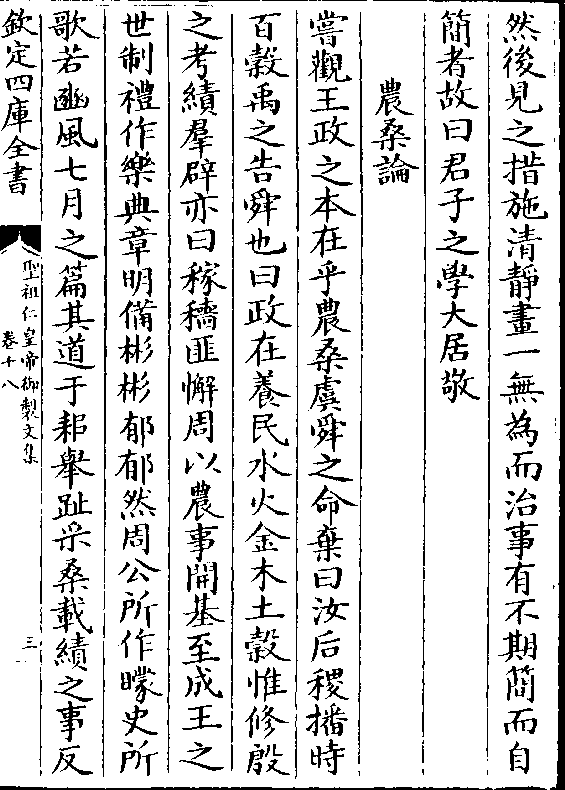 然後見之措施清靜畫一無為而治事有不期簡而自
簡者故曰君子之學大居敬
農桑論
嘗觀王政之本在乎農桑虞舜之命棄曰汝后稷播時
百穀禹之告舜也曰政在養民水火金木土穀惟修殷
之考績羣辟亦曰稼穡匪懈周以農事開基至成王之
世制禮作樂典章明備彬彬郁郁然周公所作矇史所
歌若豳風七月之篇其道于耜舉趾采桑載績之事反
欽定四庫全書
聖祖仁皇帝御製文集
卷十八
三